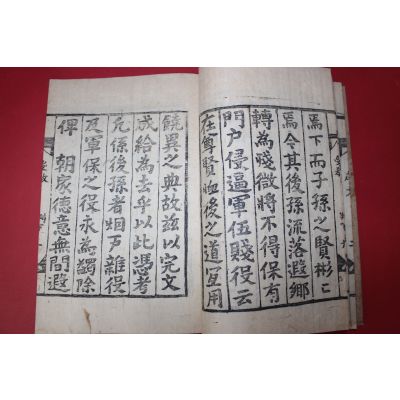 焉下而子孫之賢彬〻
焉令其後孫流落遐鄉
轉為賤微將不得保有
門户侵逼軍伍賤役云
在尊賢䘏後之道宜用
饒異之典故玆以完文
成給為去乎以此憑考
凡係後孫者烟戶雜役
及軍保之役永為蠲除
俾 朝家德意無間遐